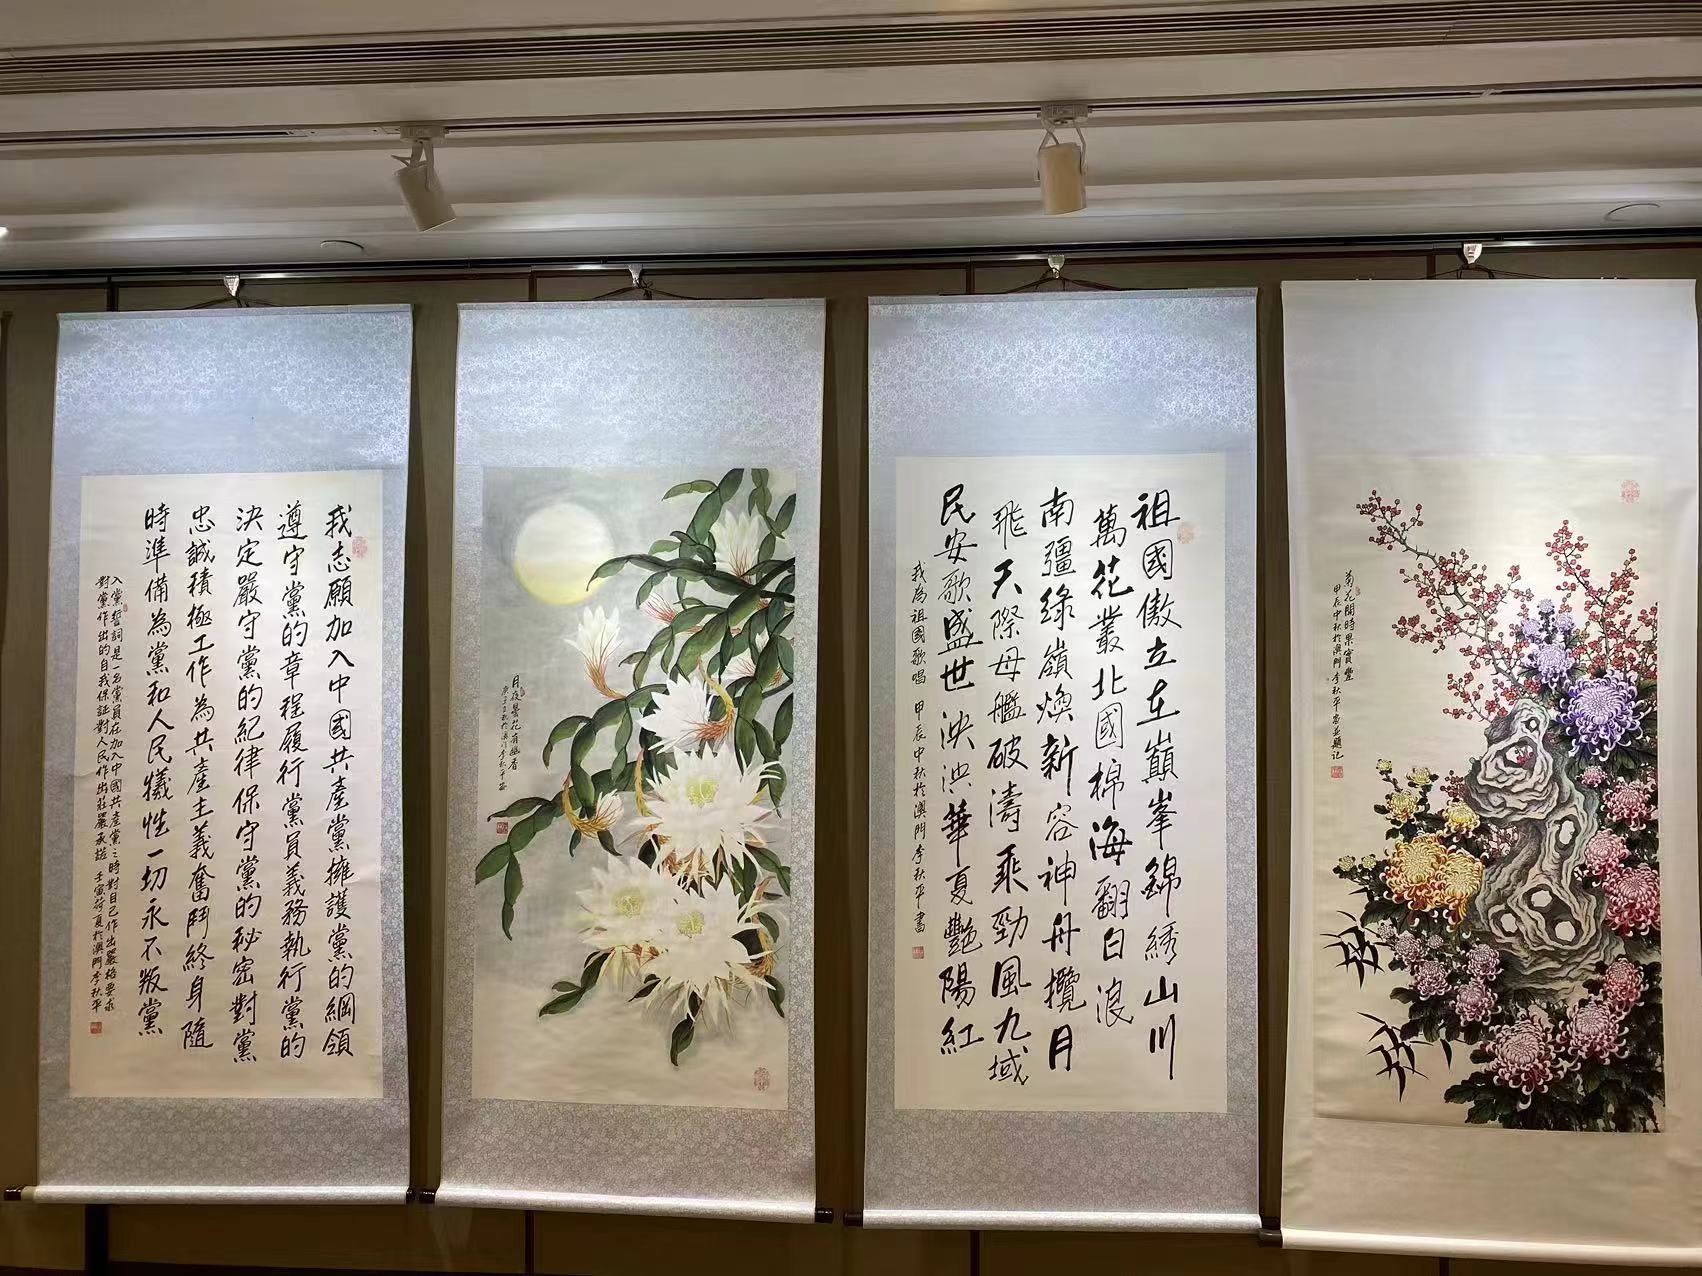 我志願加入中國共產黨擁護黨的綱領
遵守黨的章程履行黨員義務執行黨的
決定嚴守黨的紀律保守黨的秘密對黨
忠誠積極工作為共產主義奮鬥終身隨
時準備為黨和人民犧牲一切永不叛黨
入黨誓詞是一名黨員在加入中國共產黨之時對自己作出嚴格要求
對黨作出的自我保証對人民作出莊嚴承諾 壬寅荷夏於澳門李秋平
月夜曇花有幽香
於澳門李秋平
祖國傲立在巔峯錦綉山川
萬花叢北國棉海翻白浪
南疆綠嶺煥新容神舟攬月
飛天際母艦破濤乘勁風九域
民安歌盛世泱泱華夏艷陽紅
我為祖國歌唱 甲辰中秋於澳門李秋平書
菊花開時果實豐
甲辰中秋於澳門李秋平畫並題記